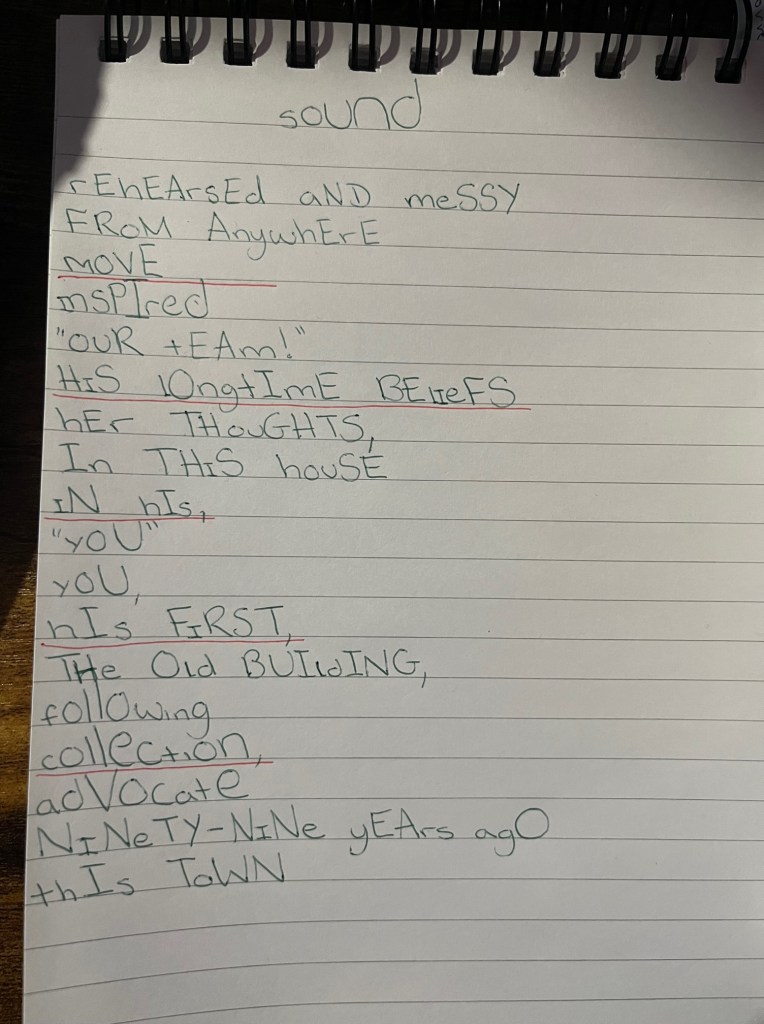 sound
rEhEArsEd aND meSSY
FRoM AnywhErE
moVE
InsPIred
"OUR tEAm!"
HiS lOngtImE BElIeFS
hEr THouGHTS,
In THiS houSE
iN hIs,
"yOU"
yOU,
hIs FIRST,
THe Old BUIldING,
follOwing
collection,
adVOcatE
NiNeTY-NiNe yEArs agO
thIs ToWN